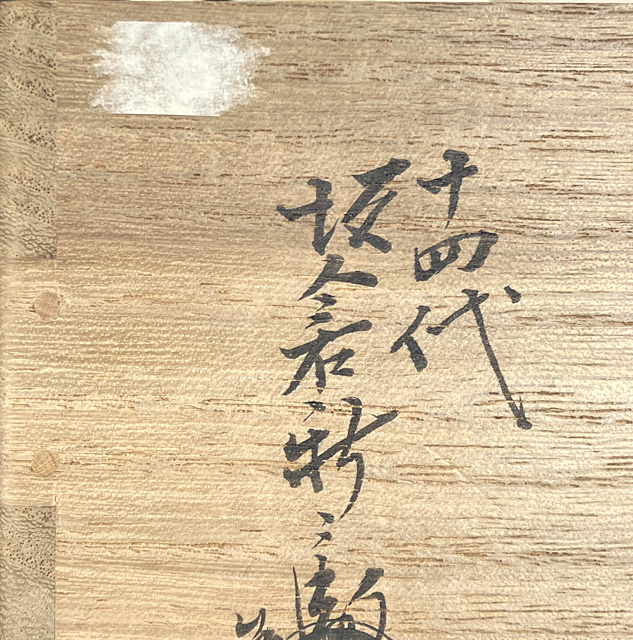 十四代
坂倉新兵衛